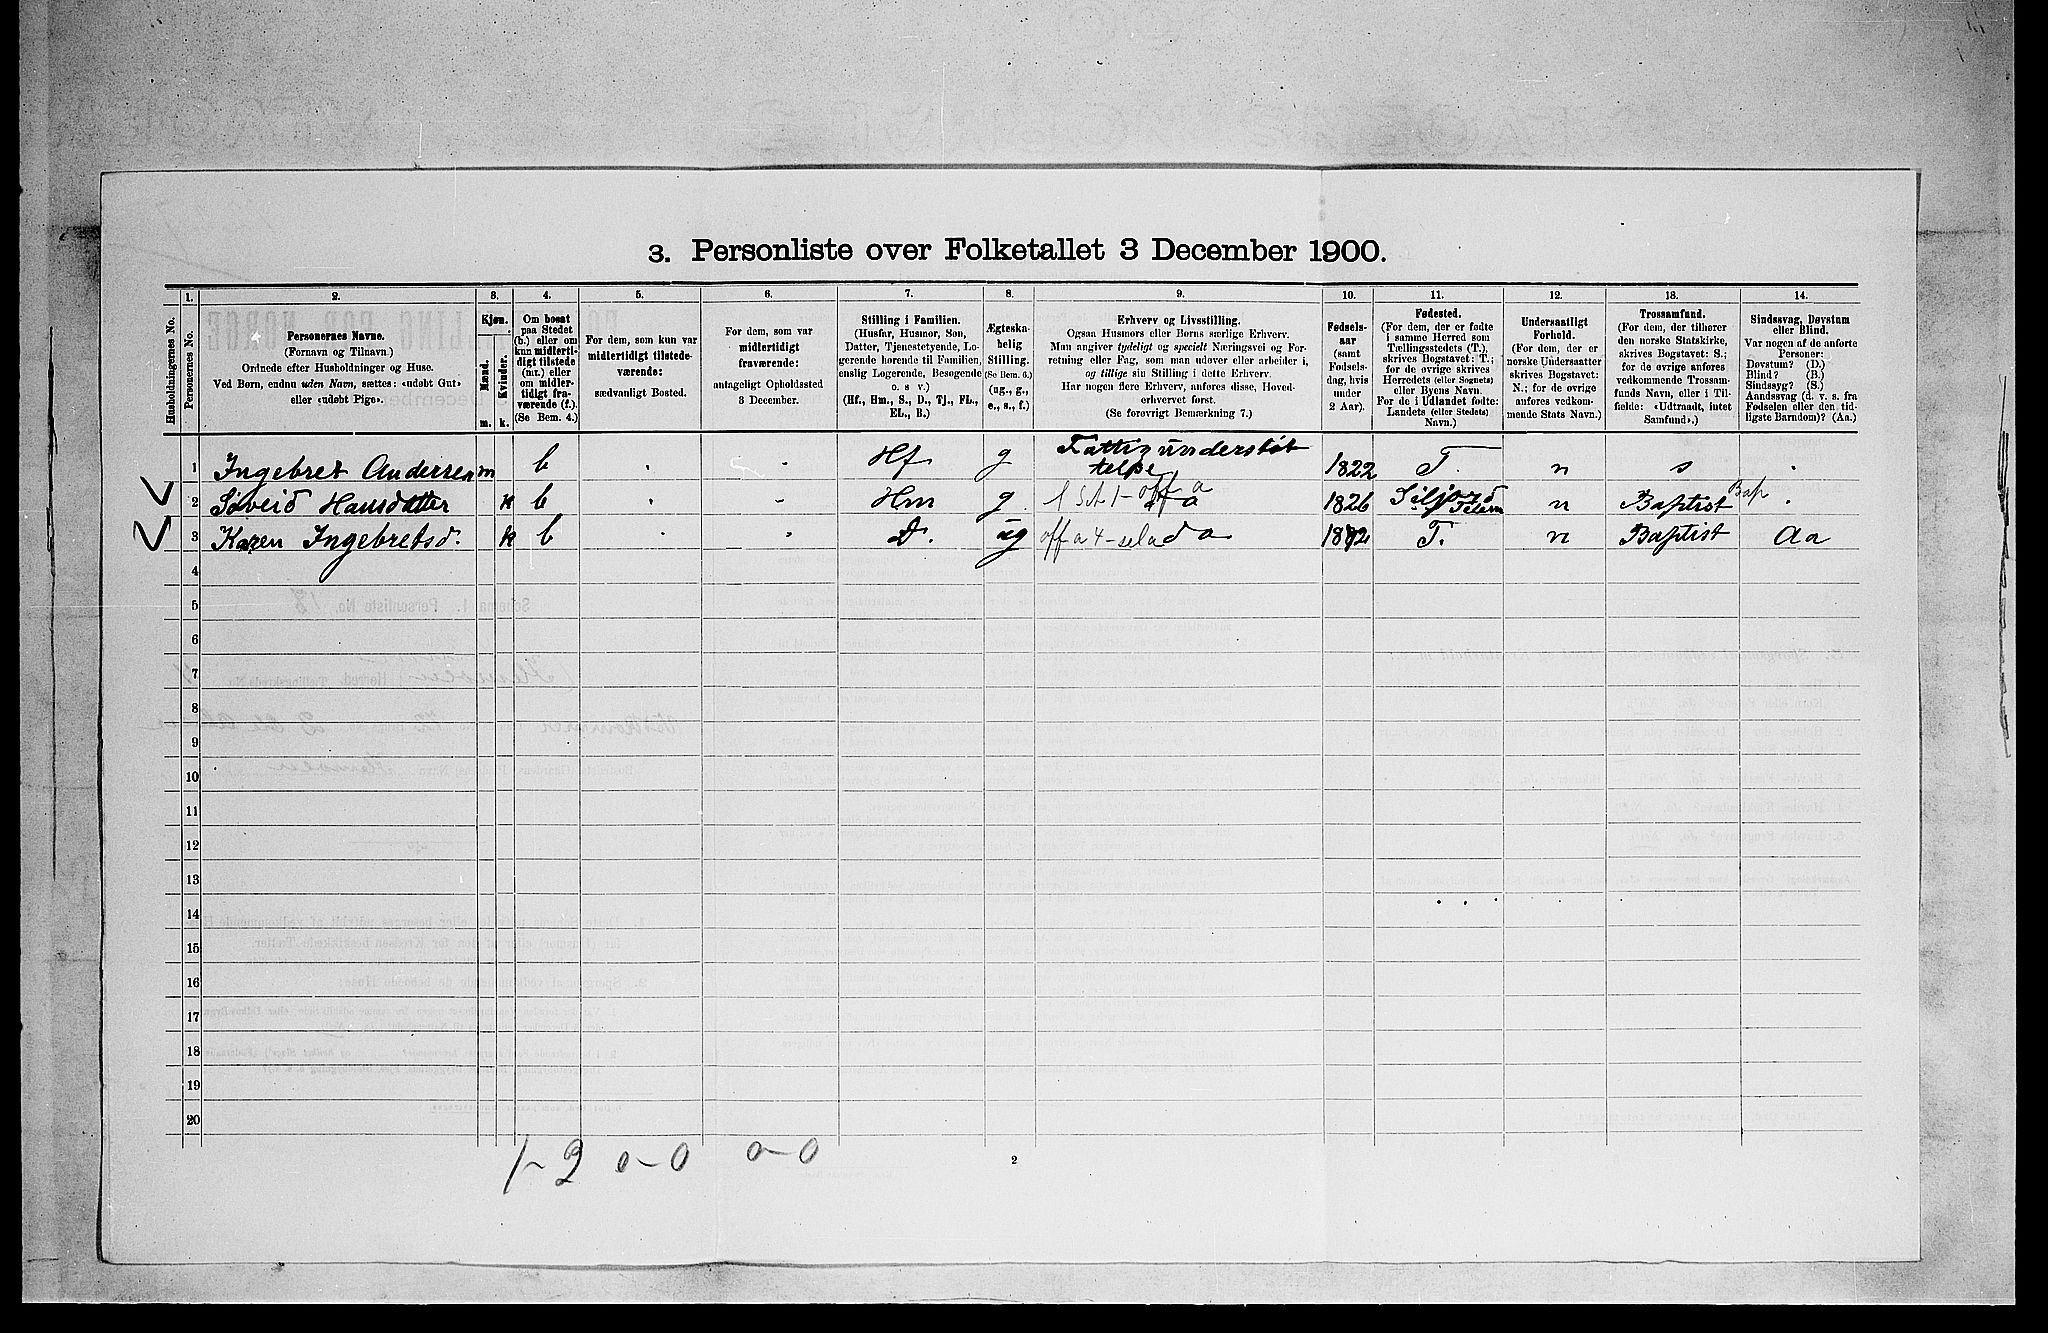 3. Personliste over Folketallet 3 December 1900.
Husholdningernes No.
1.
Personernes No.
2.
Personernes Navne.
(Fornavn og Tilnavn.)
Ordnede efter Husholdninger og Huse.
Ved Børn, endnu uden Navn, sættes: «udøbt Gut»
eller «udøbt Pige».
3.
Kjøn.
Mænd.
Kvinder.
m.
k.
4.
Om bosat
paa Stedet
(b.) eller om
kun midlerti-
digt tilstede
(mt.) eller
om midler-
tidigt fra-
værende (f.).
(Se Bem. 4.)
5.
For dem, som kun var
midlertidigt tilstede-
værende:
sædvanligt Bosted.
6.
For dem, som var
midlertidigt
fraværende:
antageligt Opholdssted
3 December.
7.
Stilling i Familien.
(Husfar, Husmor, Søn,
Datter, Tjenestetyende, Lo-
gerende hørende til Familien,
enslig Logerende, Besøgende
o. s v.)
(Hf., Hm., S., D., Tj., FL.,
EL., B.)
8.
Ægteska-
belig
Stilling.
(Se Bem. 6.)
(ug., g.,
e., s., f.)
9.
Erhverv og Livsstilling.
Ogsaa Husmors eller Børns særlige Erhverv.
Man angiver tydeligt og specielt Næringsvei og For-
retning eller Fag, som man udøver eller arbeider i,
og tillige sin Stilling i dette Erhverv.
Har nogen flere Erhverv, anføres disse, Hoved-
erhvervet først.
(Se forøvrigt Bemærkning 7.)
10.
Fødsels-
aar
(samt
Fødsels-
dag, hvis
under
2 Aar).
11.
Fødested.
(For dem, der er fødte
i samme Herred som
Tællingsstedets (T.),
skrives Bogstavet: T.;
for de øvrige skrives
Herredets (eller Sognets)
eller Byens Navn.
For de i Udlandet fødte:
Landets (eller Stedets)
Navn.)
12.
Undersaatligt
Forhold.
(For dem, der er
norske Undersaatter
skrives Bogstavet:
N.; for de øvrige
anføres vedkom-
mende Stats Navn.)
13.
Trossamfund.
(For dem, der tilhører
den norske Statskirke,
skrives Bogstavet: S.;
for de øvrige anføres
vedkommende Trossam-
funds Navn, eller i Til-
fælde: «Udtraadt, intet
Samfund».)
14.
Sindssvag, Døvstum
eller Blind.
Var nogen af de anførte
Personer:
Døvstum? (D.)
Blind? (B.)
Sindssyg? (S.)
Aandssvag (d. v. s. fra
Fødselen eller den tid-
ligste Barndom)? (Aa.)
1 Ingebret Andersen m b Hf g Fattigunderstöt 1822 T. n s
2 Söveid Hansdatter k b Hm g 1826 Siljord Telem n Baptist Bap
3 Karen Ingebretsd. k b D. ug off a 1872 T. n Baptist Aa
4
5
6
7
8
9
10
11
12
13
14
15
16
17
18
19
20
1-2 0-0 0-0
2